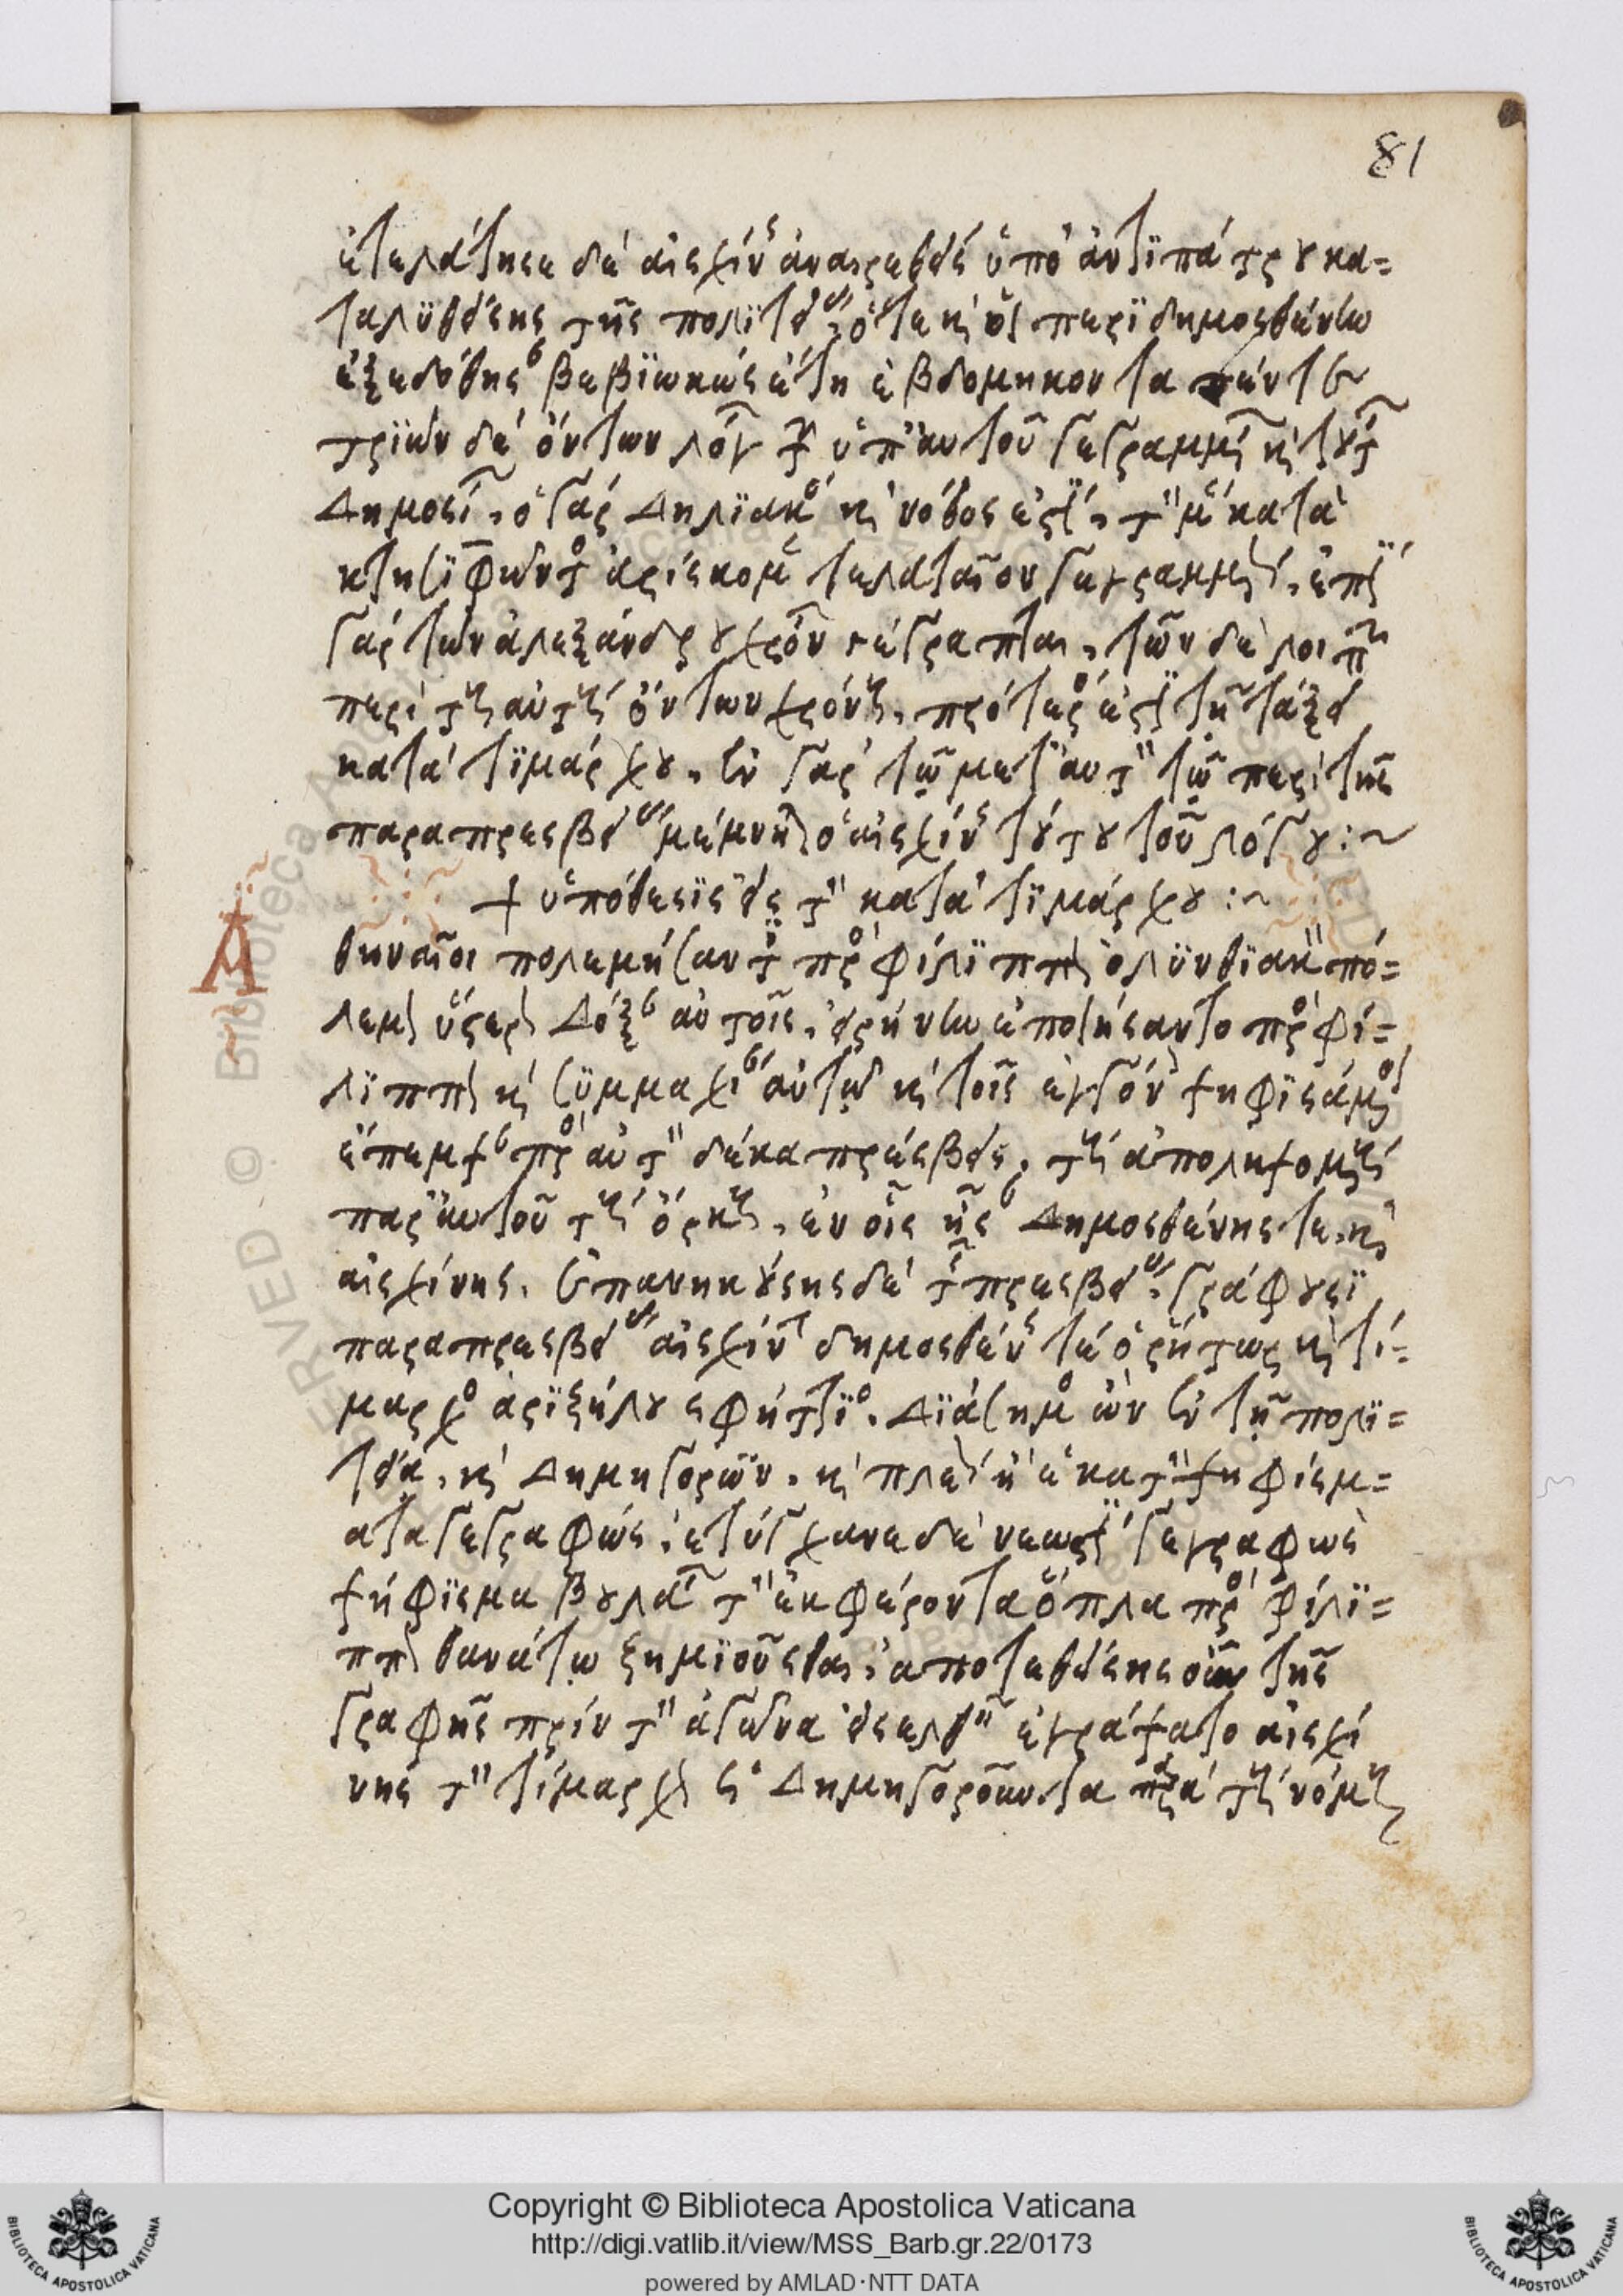 81
ἐτελεύτησε δὲ αἰσχίνης ἀναιρεθεὶς ὑπὸ ἀντιπάτρου κα=
ταλυθείσης τῆς πολιτείας, ὅτε καὶ οἱ περὶ δημοσθένην
ἐξεδόθησαν βεβιωκὼς ἔτη ἑβδομηκοντα πέντε
τριῶν δὲ ὄντων λόγων τῶν ὑπ' αυτοῦ γεγραμμένων καὶ τούτων
Δημοσίων, ὁ γὰρ Δηλιακὸς καὶ νόθος ἐστί, τὸν μὲν κατὰ
κτησιφῶντος εὑρίσκομεν τελευταῖον γεγραμμένον, ἐπὶ
γὰρ τῶν ἀλεξάνδρου χρόνων γέγραπται, τῶν δὲ λοιπῶν
περὶ τοὺς αὐτοὺς ὄντων χρόνους, πρότερός ἐστι τῇ τάξει
κατὰ τιμάρχου, ἐν γὰρ τῷ μετ' αυτὸν τῷ περὶ τῆς
παραπρεσβείας μέμνηται ὁ αἰσχίνης τούτου τοῦ λόγου :~
+ ὑπόθεσις εἰς τὸν κατὰ τιμάρχου :~
Ἀ
θηναῖοι πολεμήσαντες πρὸς φίλιππον ὀλυνθιακὸν πό=
λεμον ὕστερον Δόξαν αὐτοῖς, εἰρήνην ἐποιήσαντο πρὸς φί=
λιππον καὶ συμμαχίαν αὐτῷ καὶ τοῖς ἐγγόνοις ψηφισάμενοι
ἔπεμψαν πρὸς αὐτὸν δέκα πρέσβεις, τοὺς ἀποληψομένους
παρ' αυτοῦ τοὺς ὅρκους, ἐν οἷς ἦσαν Δημοσθένης τε, καὶ
αἰσχίνης. ἐπανηκούσης δὲ τῆς πρεσβείας, γράφουσι
παραπρεσβείας αἰσχίνην δημοσθένης τέ ὁ ῥήτωρ καὶ τί=
μαρχος ἀριζήλου σφήττιος. Διάσημος ὢν ἐν τῇ πολι=
τείᾳ, καὶ Δημηγορῶν, καὶ πλεῖον ἢ ἑκατὸν ψηφίσμ=
ατα γεγραφώς, ἐτύγχανε δὲ νεωστὶ γεγραφὼς
ψήφισμα βουλαίαν τὸν ἐκφέροντα ὅπλα πρὸς φίλι=
ππον θανάτῳ ζημιοῦσθαι, ἀποτεθείσης οὖν τῆς
γραφῆς πρίν τὸν ἀγῶνα εἰσελθεῖν ἐγράψατο αἰσχί
νης τὸν τίμαρχον ὡς Δημηγοροῦντα παρὰ τοὺς νόμους
Copyright © Biblioteca Apostolica Vaticana
http://digi.vatlib.it/view/MSS_Barb.gr.22/0173
powered by AMLAD·NTT DATA